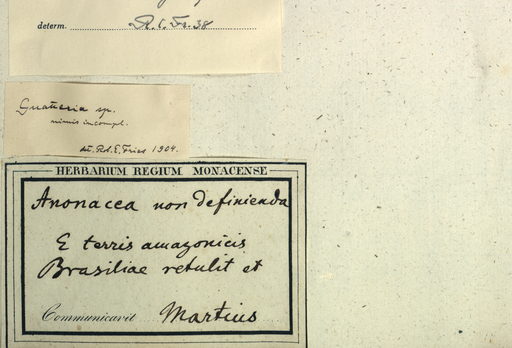 determ. R. E. Fr. 38
Guatteria sp.
nimis incompl.
det. Rob. E. Fries 1904.
HERBARIUM REGIUM MONACENSE
Anonacea non definienda
E terris amazonicis
Brasiliae retulit et
Communicavit Martius